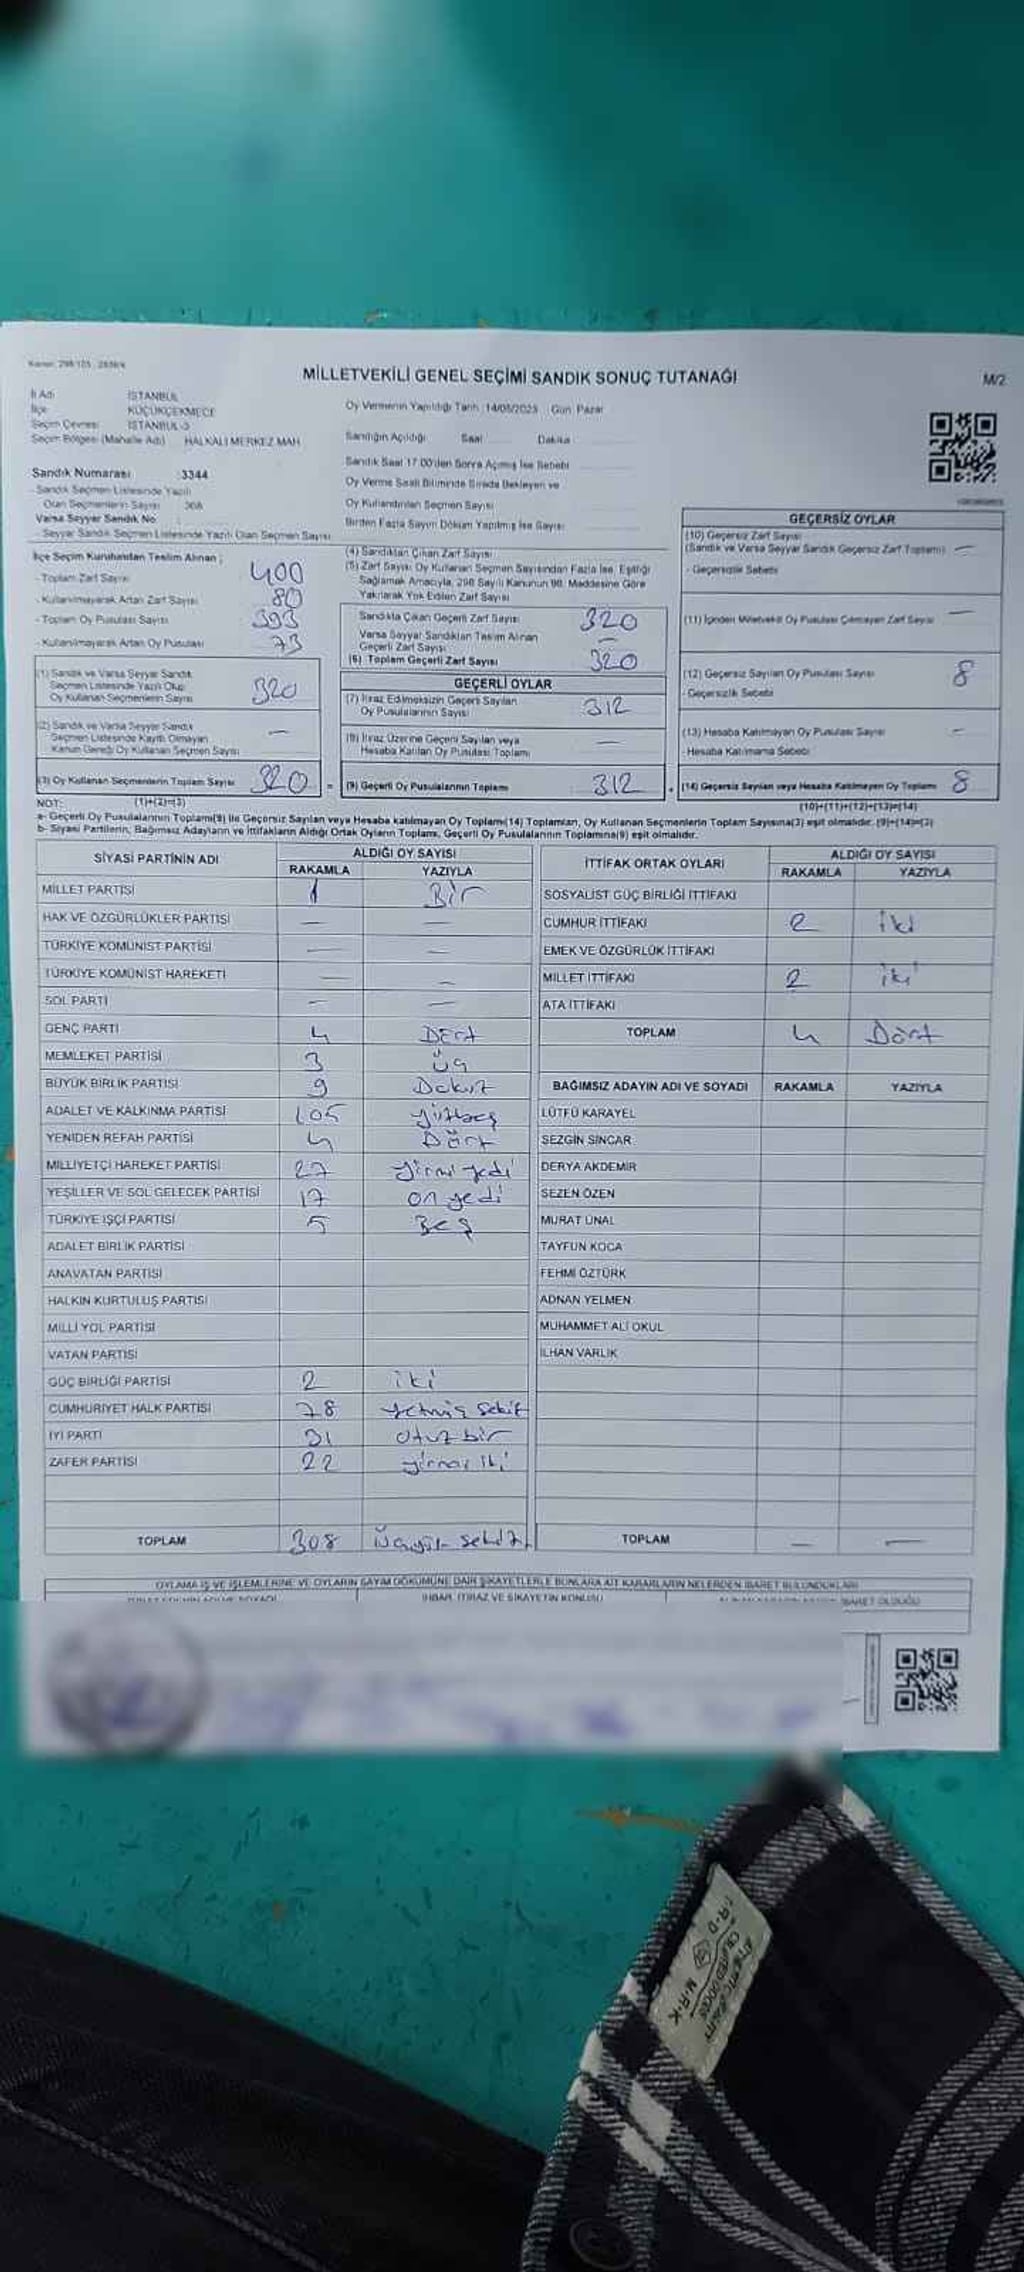 MİLLETVEKİLİ GENEL SEÇİMİ SANDIK SONUÇ TUTANAĞI
M/2
İl Adı İSTANBUL
İlçe KÜÇÜKÇEKMECE
Seçim Çevresi İSTANBUL-3
Seçim Bölgesi (Mahalle Adı) HALKALI MERKEZ MAH
Oy Vermenin Yapıldığı Tarih: 14/05/2023 Gün: Pazar
Sandığın Açıldığı Saat Dakika
Sandık Saat 17.00'den Sonra Açılmış İse Sebebi
Oy Verme Saati Bitiminde Sırada Bekleyen ve
Oy Kullandırılan Seçmen Sayısı
Birden Fazla Sayım Döküm Yapılmış İse Sayısı
Sandık Numarası 3344
Sandık Seçmen Listesinde Yazılı
Olan Seçmenlerin Sayısı
Varsa Seyyar Sandık No
Seyyar Sandık Seçmen Listesinde Yazılı Olan Seçmen Sayısı
İlçe Seçim Kurulundan Teslim Alınan ;
- Toplam Zarf Sayısı 400
- Kullanılmayarak Artan Zarf Sayısı 80
- Toplam Oy Pusulası Sayısı 393
- Kullanılmayarak Artan Oy Pusulası 73
(1) Sandık ve Varsa Seyyar Sandık
Seçmen Listesinde Yazılı Olup
Oy Kullanan Seçmenlerin Sayısı 320
(2) Sandık ve Varsa Seyyar Sandık
Seçmen Listesinde Kayıtlı Olmayan
Kanun Gereği Oy Kullanan Seçmen Sayısı —
(3) Oy Kullanan Seçmenlerin Toplam Sayısı 320
(1)+(2)=(3)
(4) Sandıktan Çıkan Zarf Sayısı
(5) Zarf Sayısı Oy Kullanan Seçmen Sayısından Fazla İse, Eşitliği
Sağlamak Amacıyla, 298 Sayılı Kanunun 98. Maddesine Göre
Yakılarak Yok Edilen Zarf Sayısı
Sandıkta Çıkan Geçerli Zarf Sayısı 320
Varsa Seyyar Sandıktan Teslim Alınan
Geçerli Zarf Sayısı —
(6) Toplam Geçerli Zarf Sayısı 320
GEÇERLİ OYLAR
(7) İtiraz Edilmeksizin Geçerli Sayılan
Oy Pusulalarının Sayısı 312
(8) İtiraz Üzerine Geçerli Sayılan veya
Hesaba Katılan Oy Pusulası Toplamı —
(9) Geçerli Oy Pusulalarının Toplamı 312
GEÇERSİZ OYLAR
(10) Geçersiz Zarf Sayısı
(Sandık ve Varsa Seyyar Sandık Geçersiz Zarf Toplamı) —
- Geçersizlik Sebebi
(11) İçinden Milletvekili Oy Pusulası Çıkmayan Zarf Sayısı —
(12) Geçersiz Sayılan Oy Pusulası Sayısı 8
- Geçersizlik Sebebi
(13) Hesaba Katılmayan Oy Pusulası Sayısı —
- Hesaba Katılmama Sebebi
(14) Geçersiz Sayılan veya Hesaba Katılmayan Oy Toplamı 8
(10)+(11)+(12)+(13)=(14)
NOT:
a- Geçerli Oy Pusulalarının Toplamı(9) ile Geçersiz Sayılan veya Hesaba katılmayan Oy Toplamı(14) Toplamları, Oy Kullanan Seçmenlerin Toplam Sayısına(3) eşit olmalıdır. (9)+(14)=(3)
b- Siyasi Partilerin, Bağımsız Adayların ve İttifakların Aldığı Ortak Oyların Toplamı, Geçerli Oy Pusulalarının Toplamına(9) eşit olmalıdır.
SİYASİ PARTİNİN ADI ALDIĞI OY SAYISI
RAKAMLA YAZIYLA
MİLLET PARTİSİ 1 Bir
HAK VE ÖZGÜRLÜKLER PARTİSİ — —
TÜRKİYE KOMÜNİST PARTİSİ — —
TÜRKİYE KOMÜNİST HAREKETİ — —
SOL PARTİ — —
GENÇ PARTİ 4 Dört
MEMLEKET PARTİSİ 3 üç
BÜYÜK BİRLİK PARTİSİ 9 Dokuz
ADALET VE KALKINMA PARTİSİ 105 yüzbeş
YENİDEN REFAH PARTİSİ 4 Dört
MİLLİYETÇİ HAREKET PARTİSİ 27 yirmi yedi
YEŞİLLER VE SOL GELECEK PARTİSİ 17 on yedi
TÜRKİYE İŞÇİ PARTİSİ 5 Beş
ADALET BİRLİK PARTİSİ
ANAVATAN PARTİSİ
HALKIN KURTULUŞ PARTİSİ
MİLLİ YOL PARTİSİ
VATAN PARTİSİ
GÜÇ BİRLİĞİ PARTİSİ 2 iki
CUMHURİYET HALK PARTİSİ 78 yetmiş sekiz
İYİ PARTİ 31 otuz bir
ZAFER PARTİSİ 22 yirmi iki
TOPLAM 308 üçyüz sekiz
İTTİFAK ORTAK OYLARI ALDIĞI OY SAYISI
RAKAMLA YAZIYLA
SOSYALİST GÜÇ BİRLİĞİ İTTİFAKI
CUMHUR İTTİFAKI 2 iki
EMEK VE ÖZGÜRLÜK İTTİFAKI
MİLLET İTTİFAKI 2 iki
ATA İTTİFAKI
TOPLAM 4 Dört
BAĞIMSIZ ADAYIN ADI VE SOYADI RAKAMLA YAZIYLA
LÜTFÜ KARAYEL
SEZGİN SİNCAR
DERYA AKDEMİR
SEZEN ÖZEN
MURAT ÜNAL
TAYFUN KOCA
FEHMİ ÖZTÜRK
ADNAN YELMEN
MUHAMMET ALİ OKUL
İLHAN VARLIK
TOPLAM — —
OYLAMA İŞ VE İŞLEMLERİNE VE OYLARIN SAYIM DÖKÜMÜNE DAİR ŞİKAYETLERLE BUNLARA AİT KARARLARIN NELERDEN İBARET BULUNDUKLARI
İHBAR, İTİRAZ VE ŞİKAYETİN KONUSU